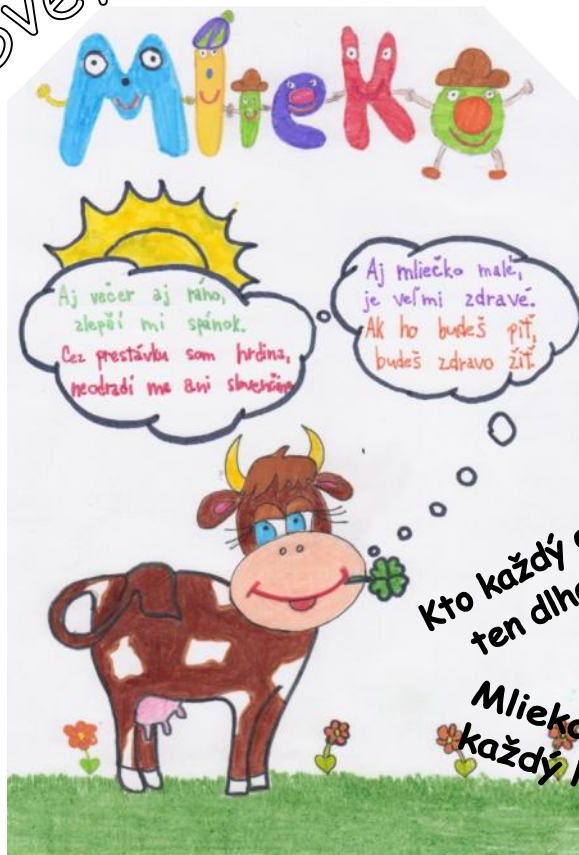 Mlieko
Aj večer aj ráno,
zlepší mi spánok.
Cez prestávku som hrdina,
neodradí ma ani slovenčina
Aj mliečko malé,
je veľmi zdravé.
Ak ho budeš piť,
budeš zdravo žiť.
Kto každý
ten
Mlieko
každý